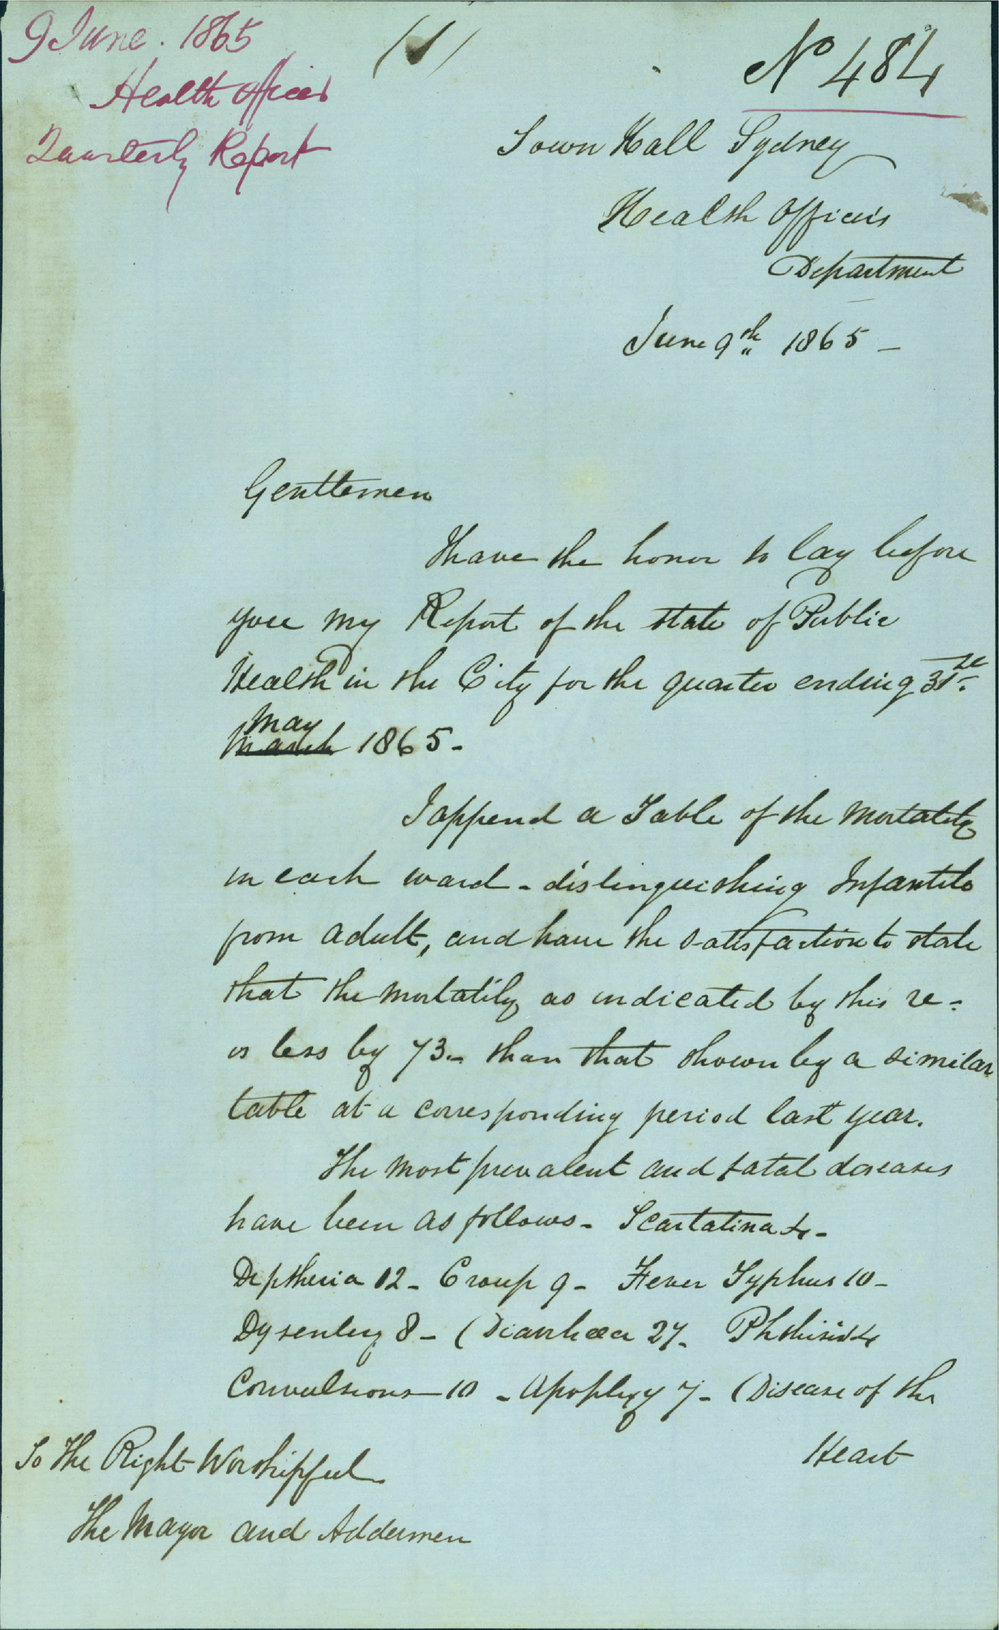 9 June. 1865
Health Officer
Quarterly Report
(1)
No 484
Town Hall Sydney
Health Officer's
Department
June 9th 1865 -
Gentlemen
I have the honor to lay before
you my Report of the state of Public
Health in the City for the quarter ending 31st
May
March 1865 -
I append a Table of the Mortality
in each ward - distinguishing Infantile
from adult, and have the satisfaction to state
that the mortality as indicated by this re-
is less by 73 - than that shown by a similar
table at a corresponding period last year.
The most prevalent and fatal diseases
have been as follows - Scarlatina 4 -
Diptheria 12 - Croup 9 - Fever Typhus 10 -
Dysentery 8 - Diarrhœa 27 - Phthisis 4
Convulsions - 10 - Apoplexy 7 - Disease of the
Heart
To The Right Worshipful
The Mayor and Aldermen